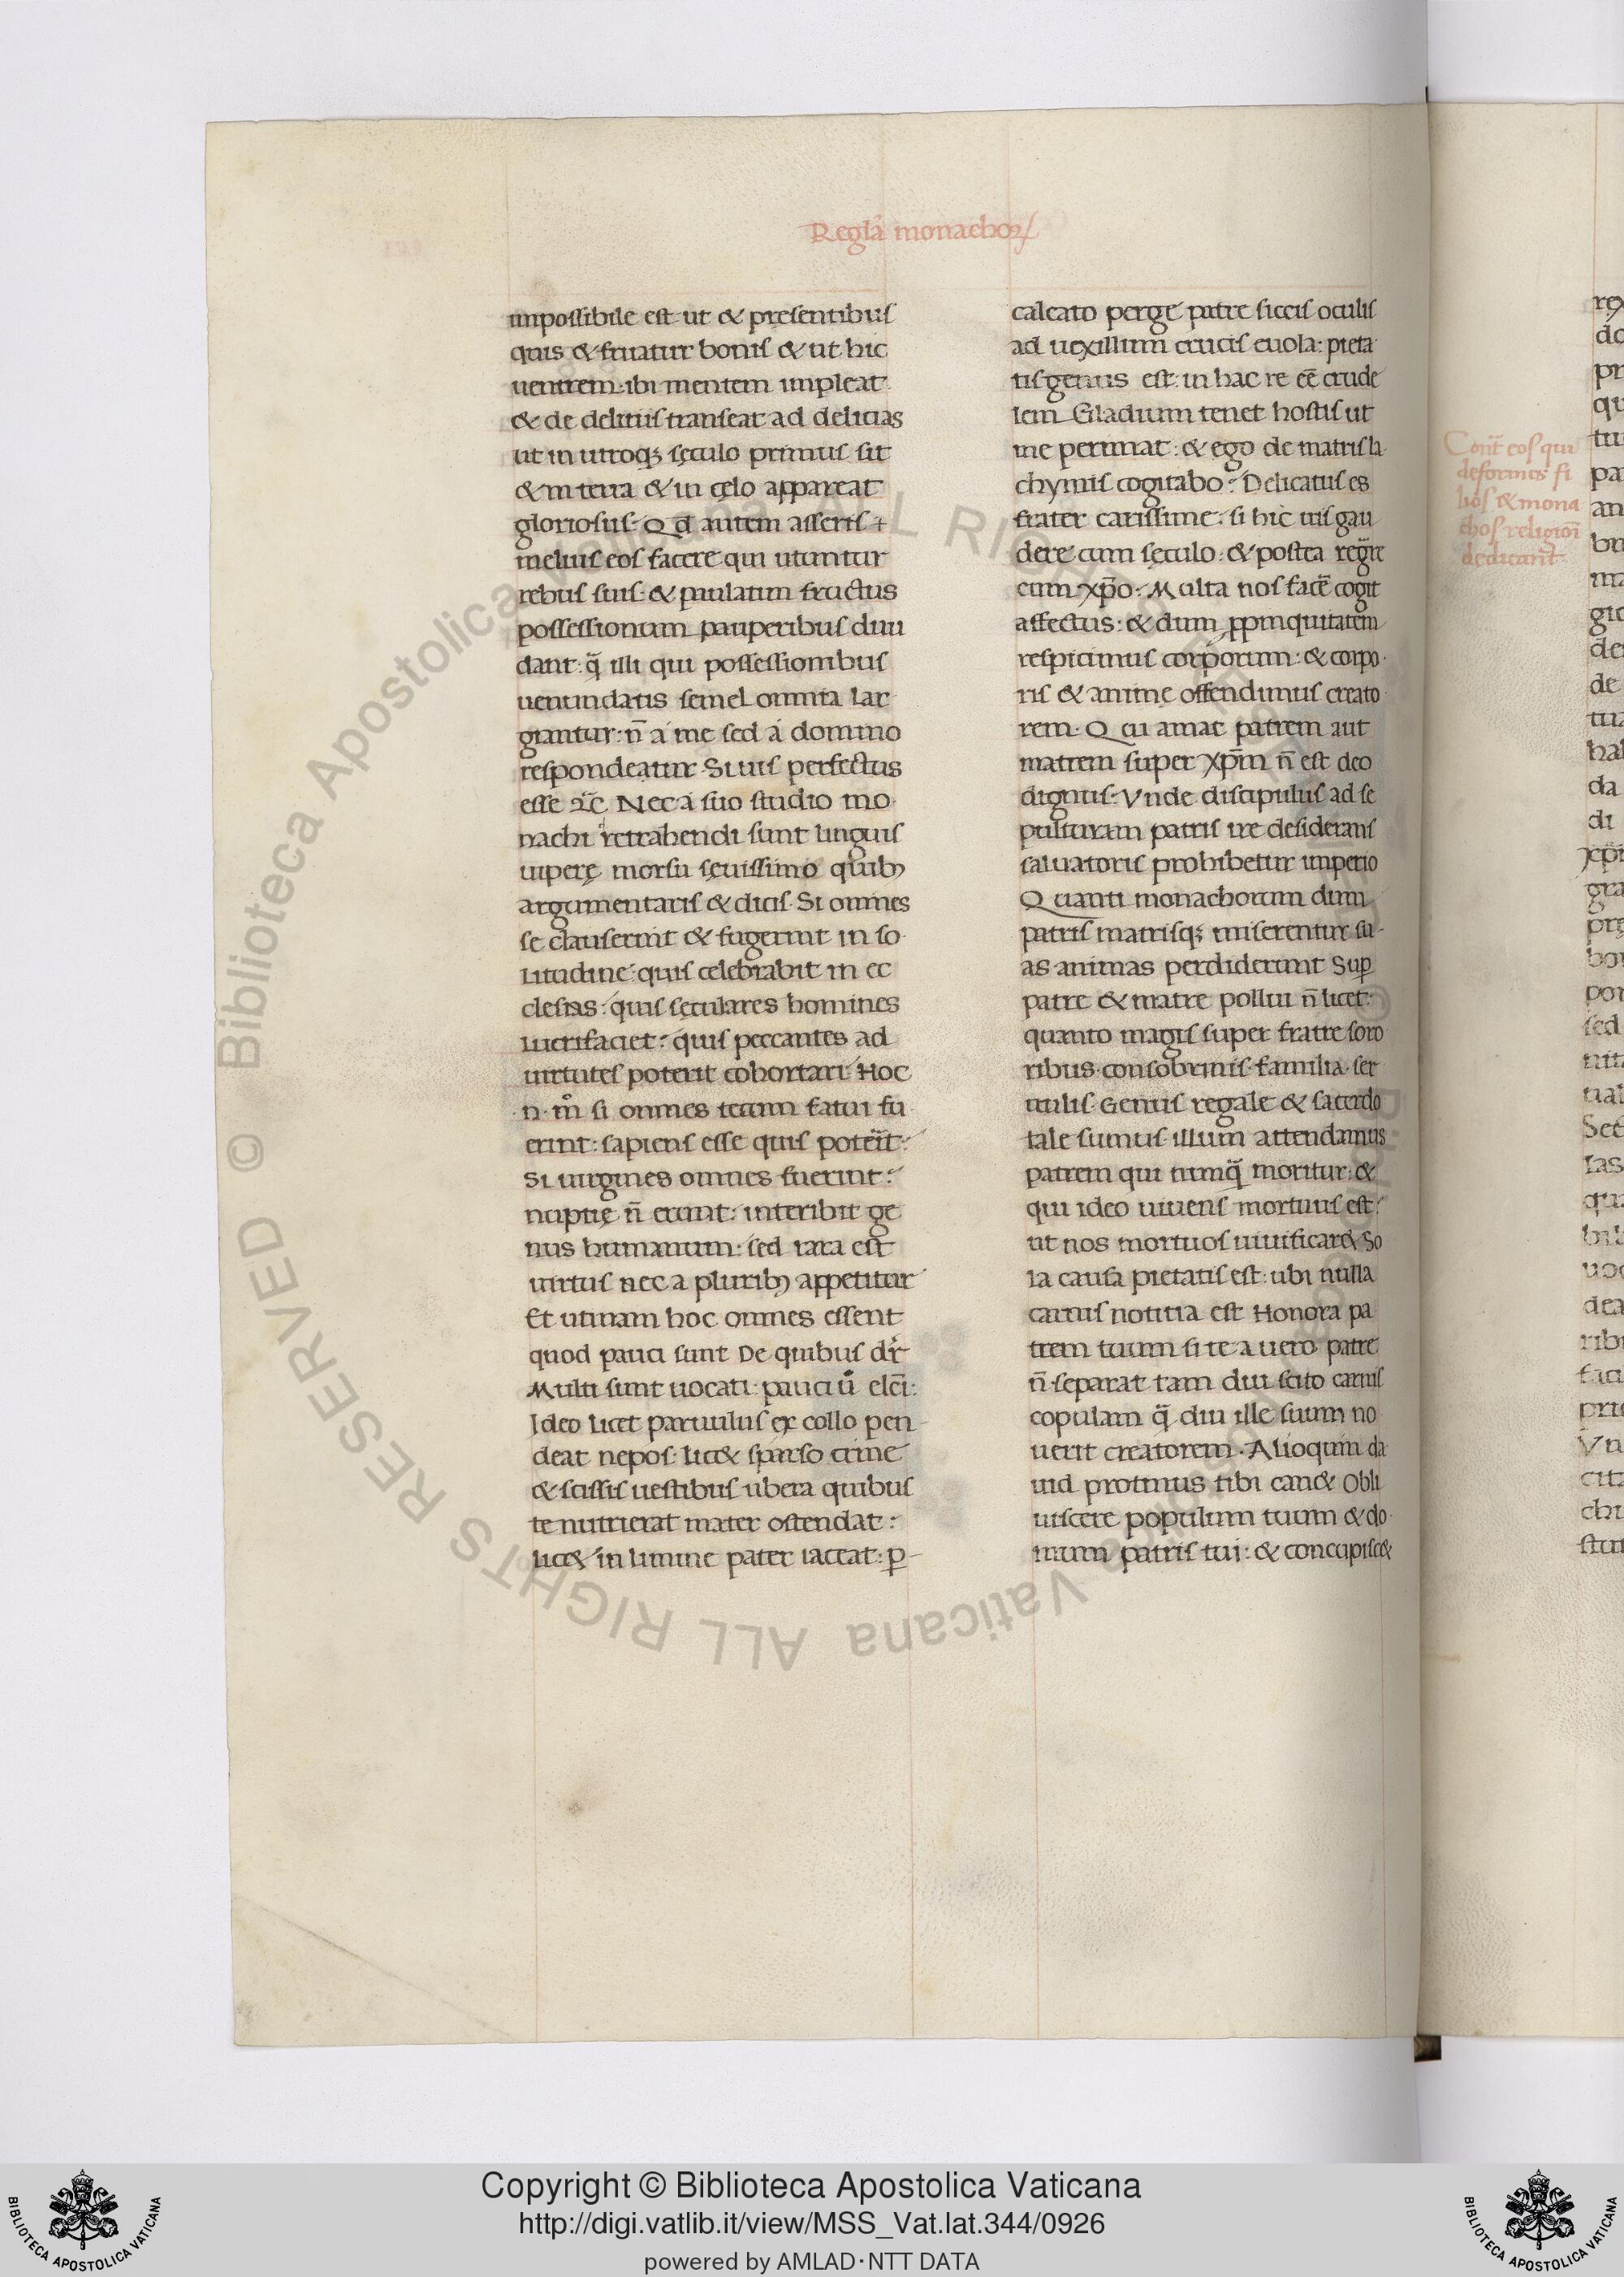 Regl̄a monachoꝝ
impossibile est ut & pręsentibus
quis & fruatur bonis & ut hic
uentrem ibi mentem impleat
& de delitiis transeat ad delicias
ut in utroqꝫ sęculo primus sit
& in terra & in cęlo appareat
gloriosus. Qđ autem asseris +
melius eos facere qui utuntur
rebus suis. & paulatim fructus
possessionum pauperibus diui
dant: q̄ illi qui possessionibus
uenundatis semel omnia lar
giantur: n̄ a me sed a domino
respondeatur. Si uis perfectus
esse ⁊c̄. Nec a suo studio mo
nachi retrahendi sunt linguis
uiperę morsu sęuissimo quibꝰ
argumentaris & dicis. Si omnes
se clauserint & fugerint in so
litudine: quis celebrabit in ec
clesias: quis sęculares homines
lucrifaciet: quis peccantes ad
uirtutes poterit cohortari. Hoc
n. m̊ si omnes tecum fatui fu
erint: sapiens esse quis poterit:
Si uirgines omnes fuerint:
nuptię n̄ erunt: interibit ge
nus humanum: sed rara est
uirtus nec a pluribꝰ appetitur
Et utinam hoc omnes essent
quod pauci sunt De quibus dr̄
Multi sunt uocati: pauci ů elc̄i:
Ideo licet paruulus ex collo pen
deat nepos: lic& sparso crine
& scissis uestibus ubera quibus
te nutrierat mater ostendat:
lic& in limine pater iaceat: ꝑ
calcato perge patre siccis oculis
ad uexillum crucis euola: pieta
tis genus est: in hac re eē crude
lem. Gladium tenet hostis ut
me perimat: & ego de matris la
chymis cogitabo: Delicatus es
frater carissime. si hic uis gau
dere cum sęculo: & postea regn̄e
cum xp̄o. Multa nos facē cogit
affectus: & dum ꝓpinquitatem
respicimus corporum: & corpo
ris & animę offendimus creato
rem. Qui amat patrem aut
matrem super xp̄m n̄ est deo
dignus. Vnde discipulus ad se
pulturam patris ire desiderans
saluatoris prohibetur imperio
Quanti monachorum dum
patris matrisqꝫ miserentur su
as animas perdiderunt Suꝑ
patre & matre pollui n̄ licet:
quanto magis super fratre soro
ribus. consobrinis. familia. ser
uulis. Genus regale & sacerdo
tale sumus. illum attendamus
patrem qui numq̄ moritur: &
qui ideo uiuens mortuus est:
ut nos mortuos uiuificar&. So
la causa pietatis est: ubi nulla
carnis notitia est Honora pa
trem tuum si te a uero patre
n̄ separat tam diu scito carnis
copulam q̄ diu ille suum no
uerit creatorem. Alioquin da
uid protinus tibi can& Obli
uiscere populum tuum & do
mum patris tui: & concupisc&
Cont̄ eos qui
deformes fi
lios & mona
chos religion̄
dedicant
Copyright © Biblioteca Apostolica Vaticana
http://digi.vatlib.it/view/MSS_Vat.lat.344/0926
powered by AMLAD·NTT DATA
BIBLIOTECA APOSTOLICA VATICANA
BIBLIOTECA APOSTOLICA VATICANA
© Biblioteca Apostolica Vaticana ALL RIGHTS RESERVED